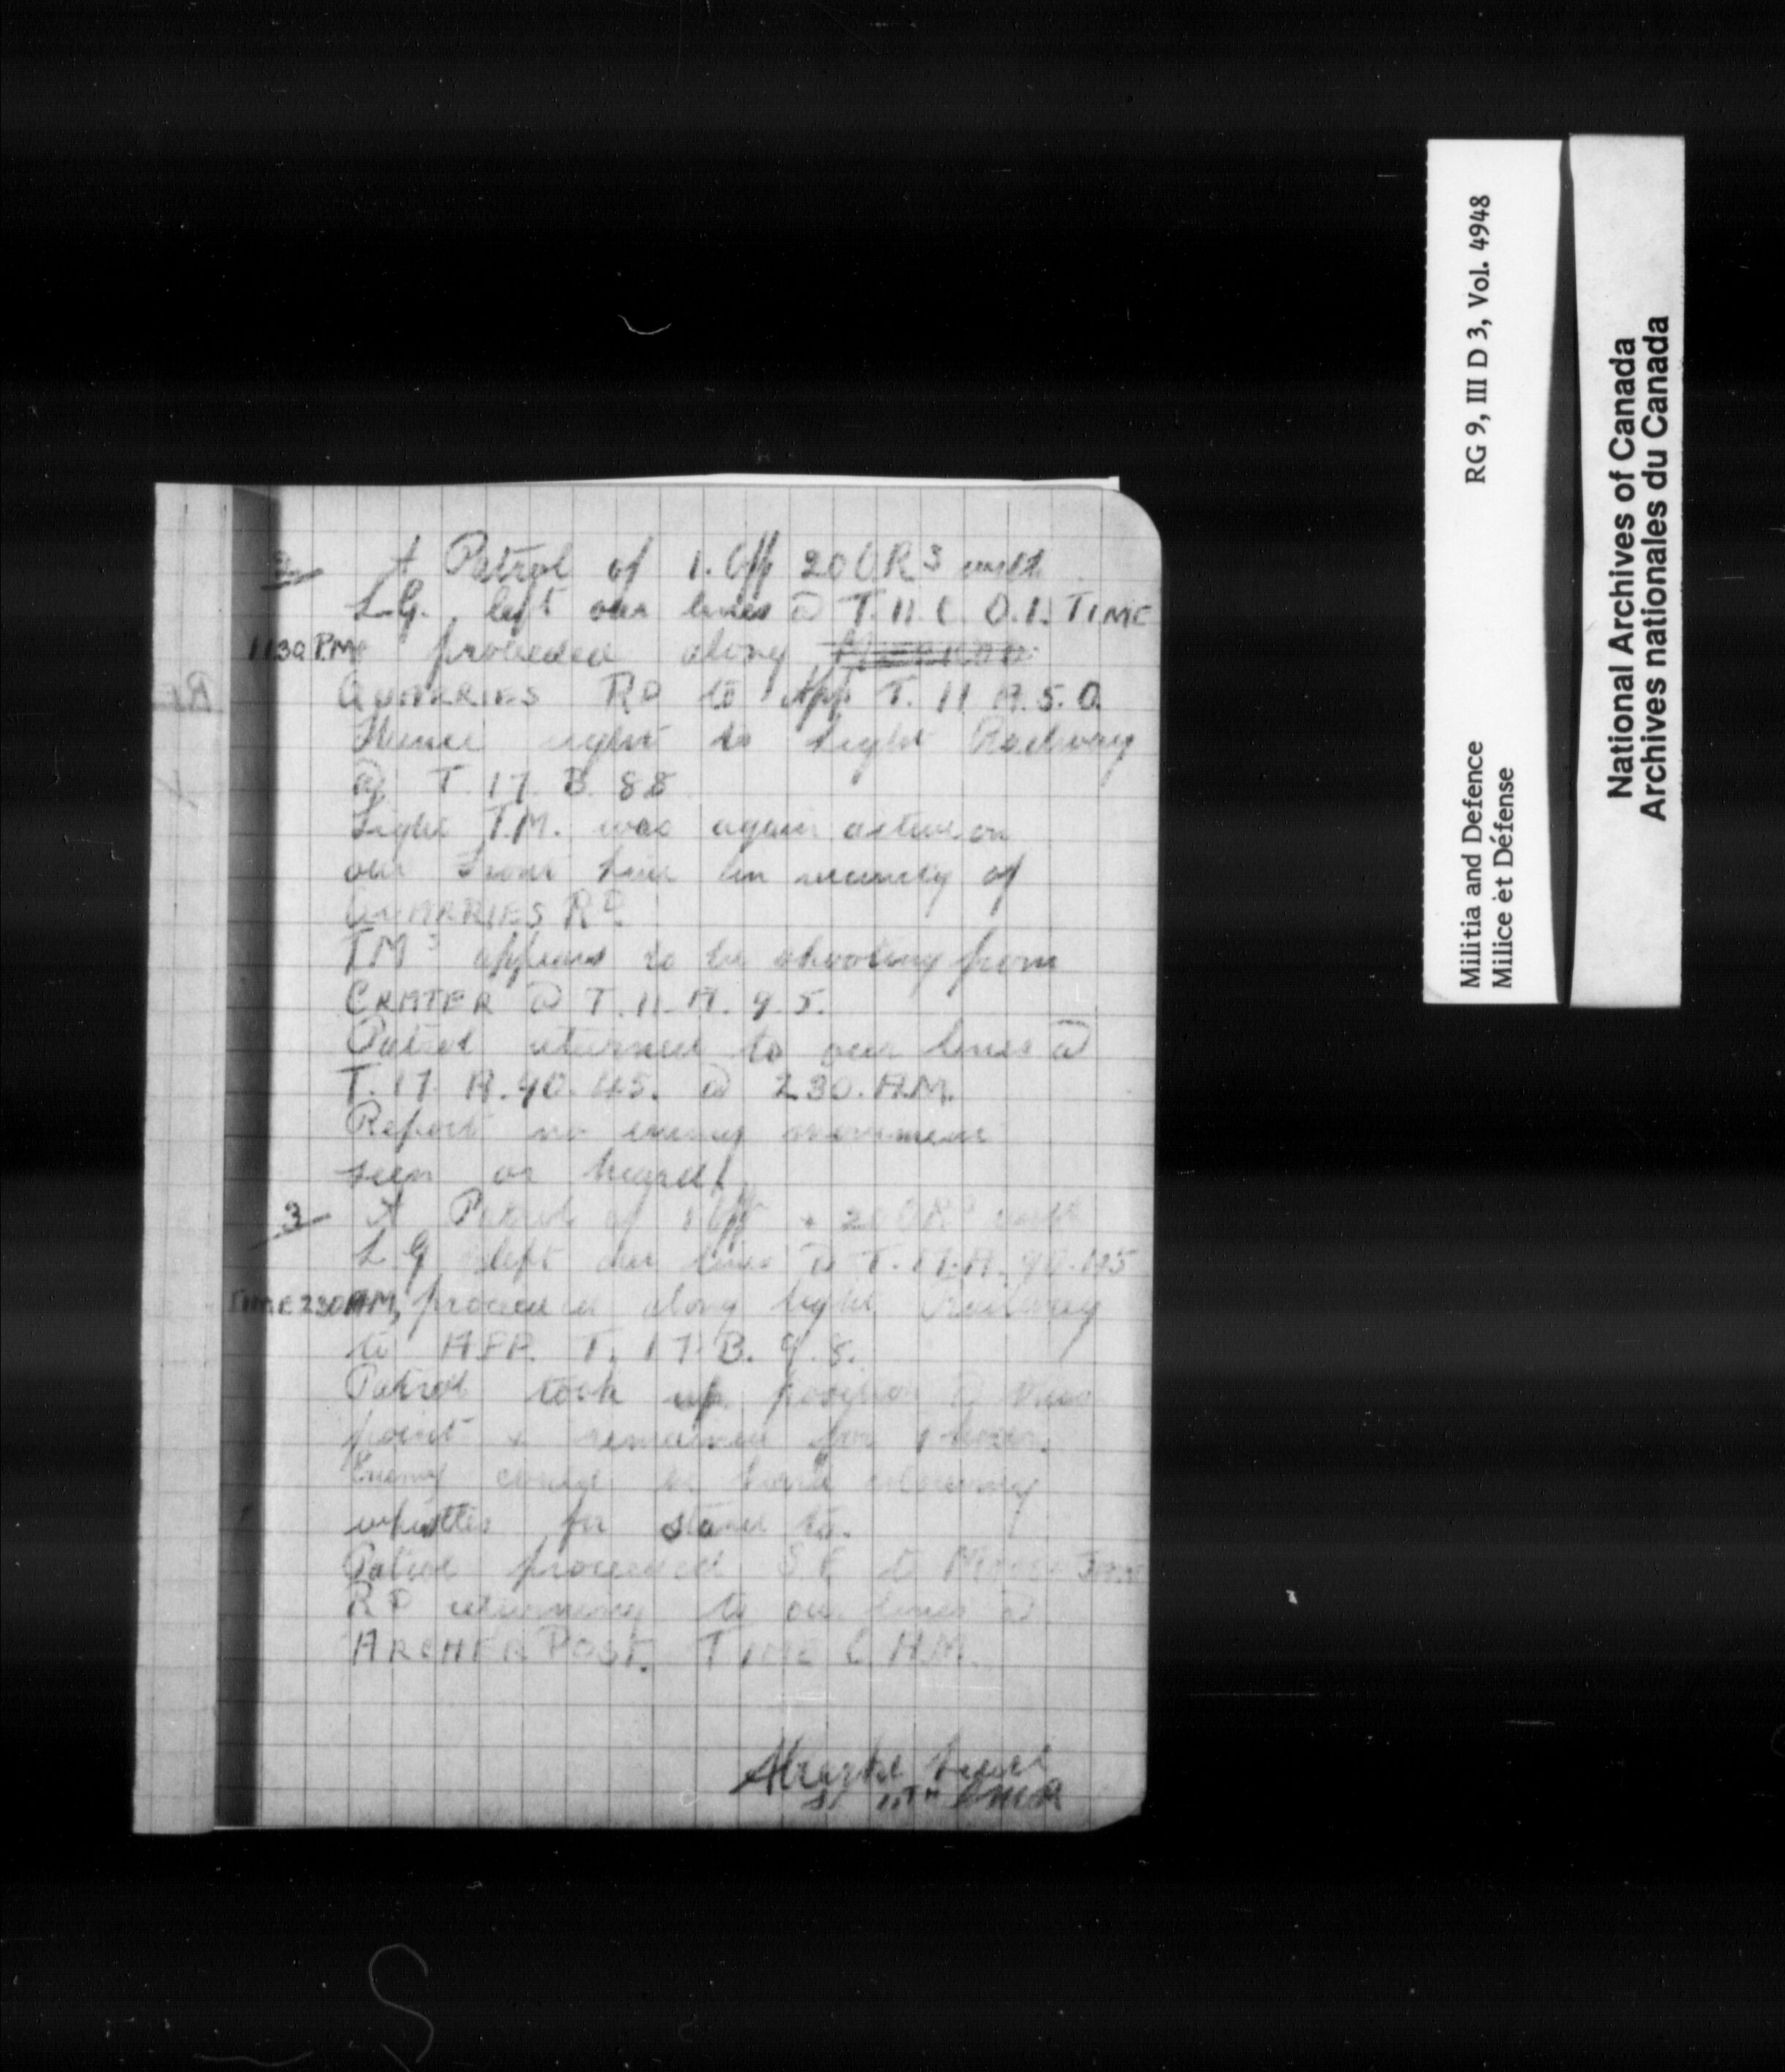 2 A Patrol of 1. Off 20 ORs with
L.G. left our lines @ T.11.C.0.1. TIME
1130 P.M. proceeded along
QUARRIES RD to App T. 11 A.5.0.
Thence right to Light Railway
@ T. 17. B. 88
Light T.M. was again active on
our front line in vicinity of
QUARRIES RD.
TMs appears to be shooting from
CRATER @ T. 11. A. 9. 5.
Patrol returned to our lines @
T. 17. A. 90. 45. @ 2.30. A.M.
Report no enemy movement
seen or heard.
3 A Patrol of 1 Off + 20 ORs with
L.G left our lines @ T.17.A. 90.45
TIME 230 AM, proceeded along light Railway
to APP. T. 17. B. 9. 8.
Patrol took up position @ this
point & remained for 1 hour.
Enemy could be heard blowing
whistles for stand to.
Patrol proceeded S.E. to
RD returning to our lines @
ARCHER POST. TIME A.M.
Lieut
CMR
Militia and Defence RG 9, III D 3, Vol. 4948
Milice et Défense
National Archives of Canada
Archives nationales du Canada